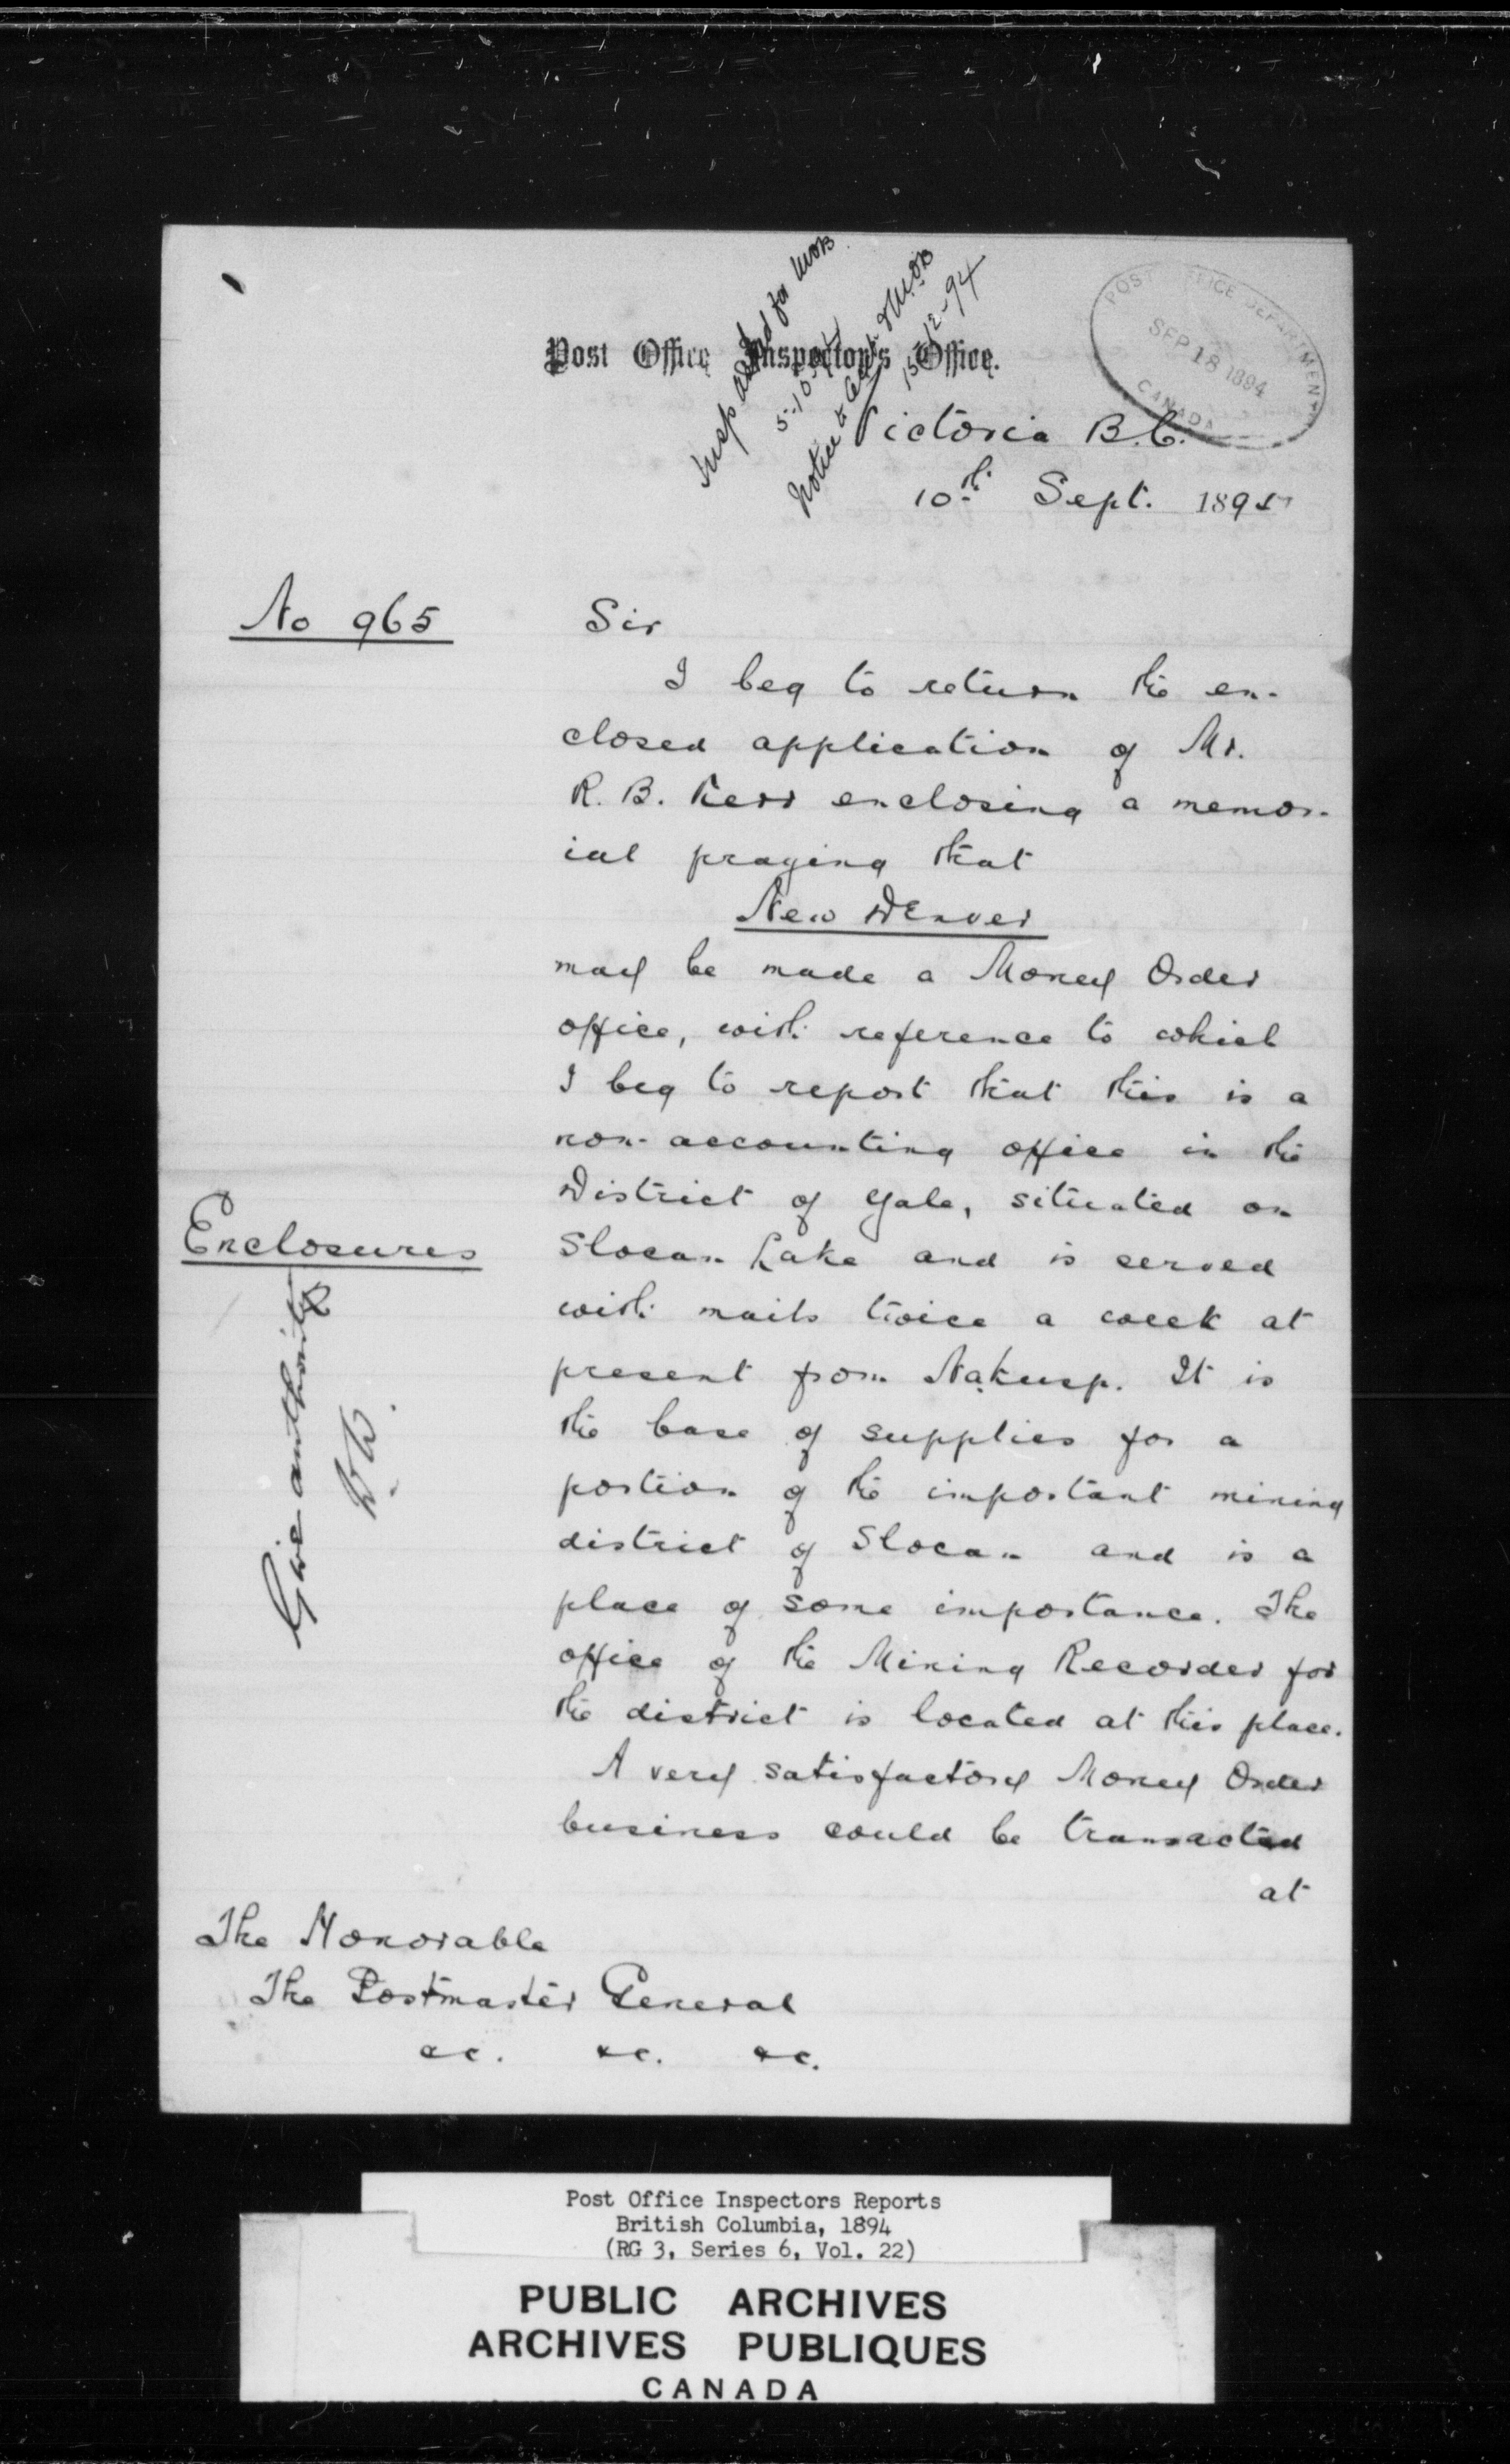 Insp for MOB
5-10-94
Notice to & MOB
15-12-94
Post Office Inspector's Office.
POST OFFICE DEPARTMENT
SEP 18 1894
CANADA
Victoria B.C.
10th Sept. 189
No 965
Sir
I beg to return the en-
closed application of Mr.
R. B. Kerr enclosing a memor-
ial praying that
New Denver
may be made a Money Order
office, with reference to which
I beg to report that this is a
non-accounting office in the
District of Yale, situated on
Slocan Lake and is served
with mails twice a week at
present from Nakusp. It is
the base of supplies for a
portion of the important mining
district of Slocan and is a
place of some importance. The
office of the Mining Recorder for
the district is located at this place.
A very satisfactory Money Order
business could be transacted
at
Enclosures
Give authority
The Honorable
The Postmaster General
&c. &c. &c.
Post Office Inspectors Reports
British Columbia, 1894
(RG 3, Series 6, Vol. 22)
PUBLIC ARCHIVES
ARCHIVES PUBLIQUES
CANADA